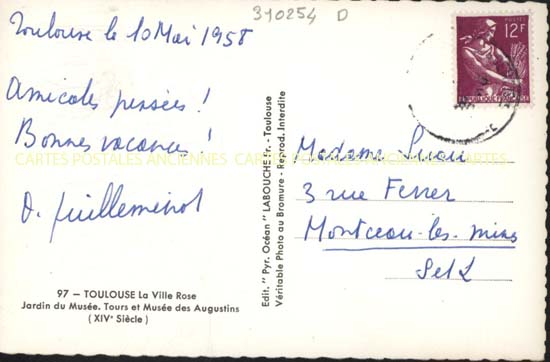 310254 D
Toulouse le 10 Mai 1958
Amicales pensées !
Bonnes vacances !
CARTES POSTALES ANCIENNES
D. Guilleminot
97 — TOULOUSE La Ville Rose
Jardin du Musée. Tours et Musée des Augustins
(XIVᵉ Siècle)
Edit. "Pyr. Océan" LABOUCHE Fr. - Toulouse
Véritable Photo au Bromure - Reprod. Interdite
POSTES
12F
REPUBLIQUE FRANÇAISE
Madame
3 rue Ferrer
Montceau-les-mines
S et L